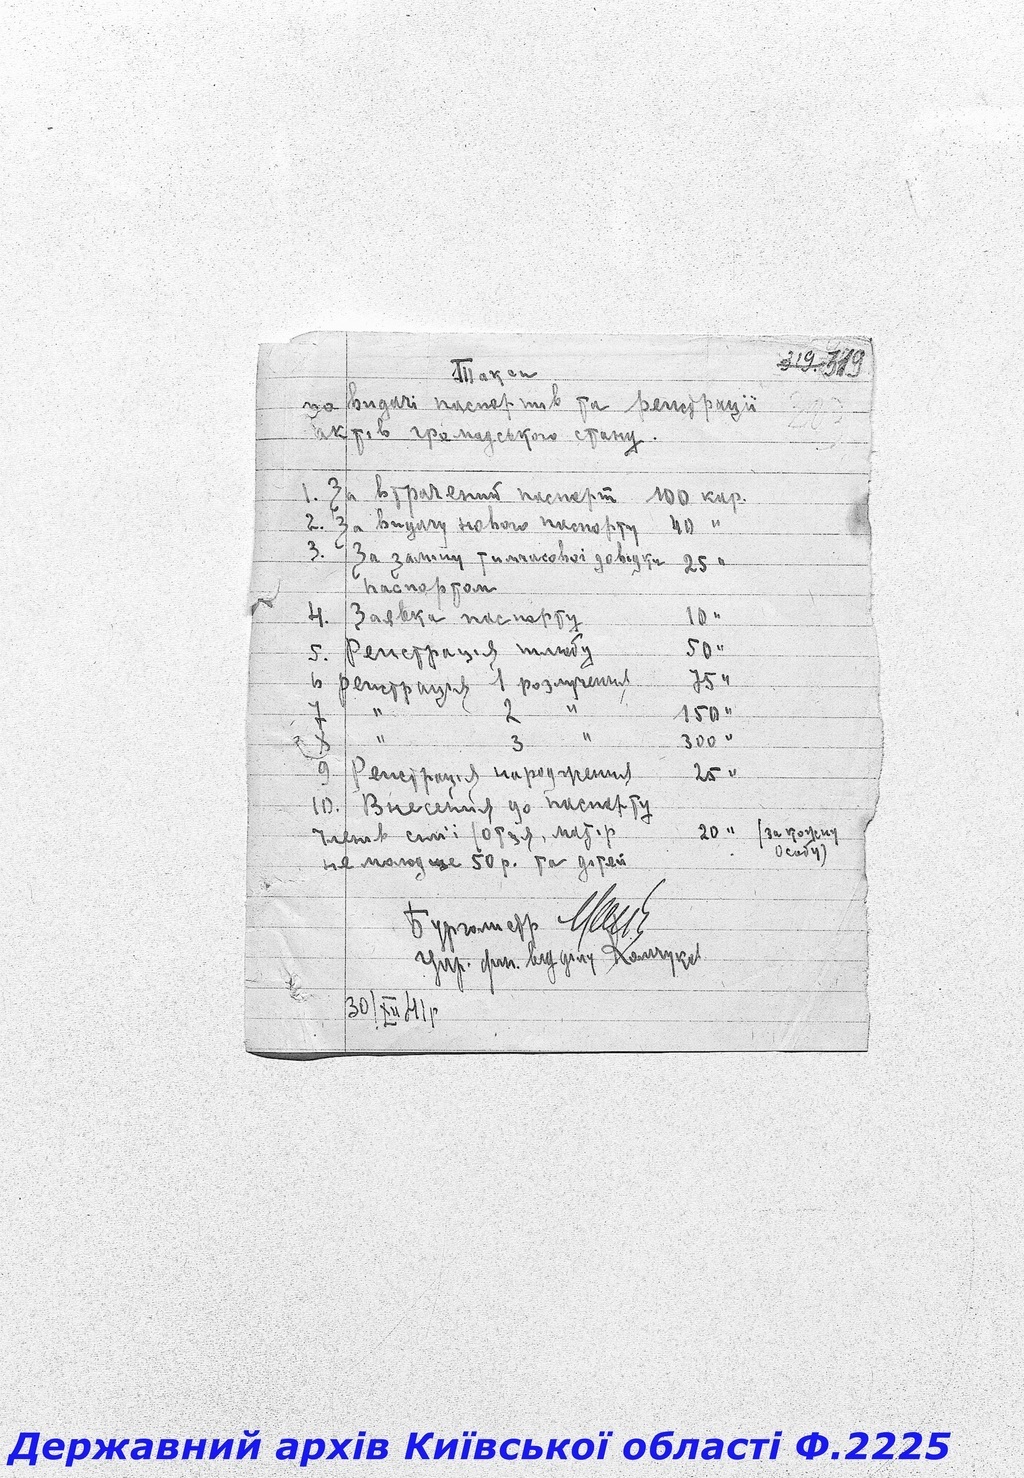 319. 319
Такси
по видачі паспортів та реістрації
актів громадського стану.
1. За втрачений паспорт 100 кар.
2. За видачу нового паспорту 40 "
3. За заміну тимчасової довідки 25 "
паспортом
4. Заявка паспорту 10 "
5. Реістрація шлюбу 50 "
6 реістрація 1 розлучення 75 "
7 " 2 " 150 "
8 " 3 " 300 "
9 Реістрація народження 25 "
10. Внесення до паспорту
членів сім'ї (отця, матір 20 " (за кожну
не молодше 50 р. та дітей особу)
Бургомістр
фін. відділу
30/XII 41 р
Державний архів Київської області Ф.2225